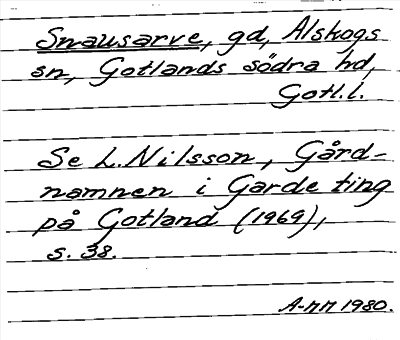 Snausarve, gd, Alskogs
sn, Gotlands södra hd,
Gotl.l.
Se L. Nilsson, Gård-
namnen i Garde ting
på Gotland (1969),
s. 38.
A-MM 1980.